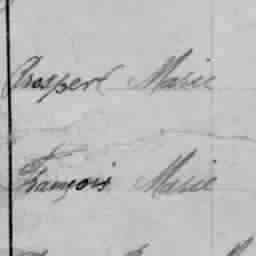 Prosper Marie
François Marie